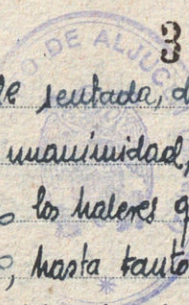 3
DE ALJUC
le sentada, d
unanimidad,
o los haberes q
o, hasta tanto